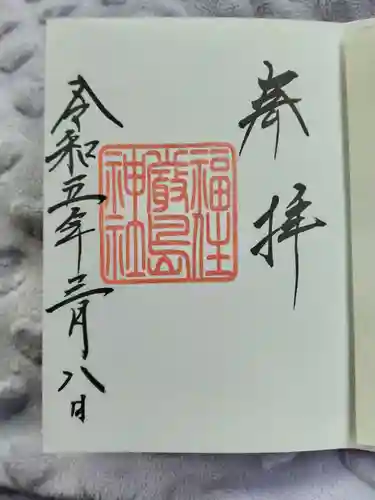 奉拝
福住
厳島
神社
令和五年三月八日